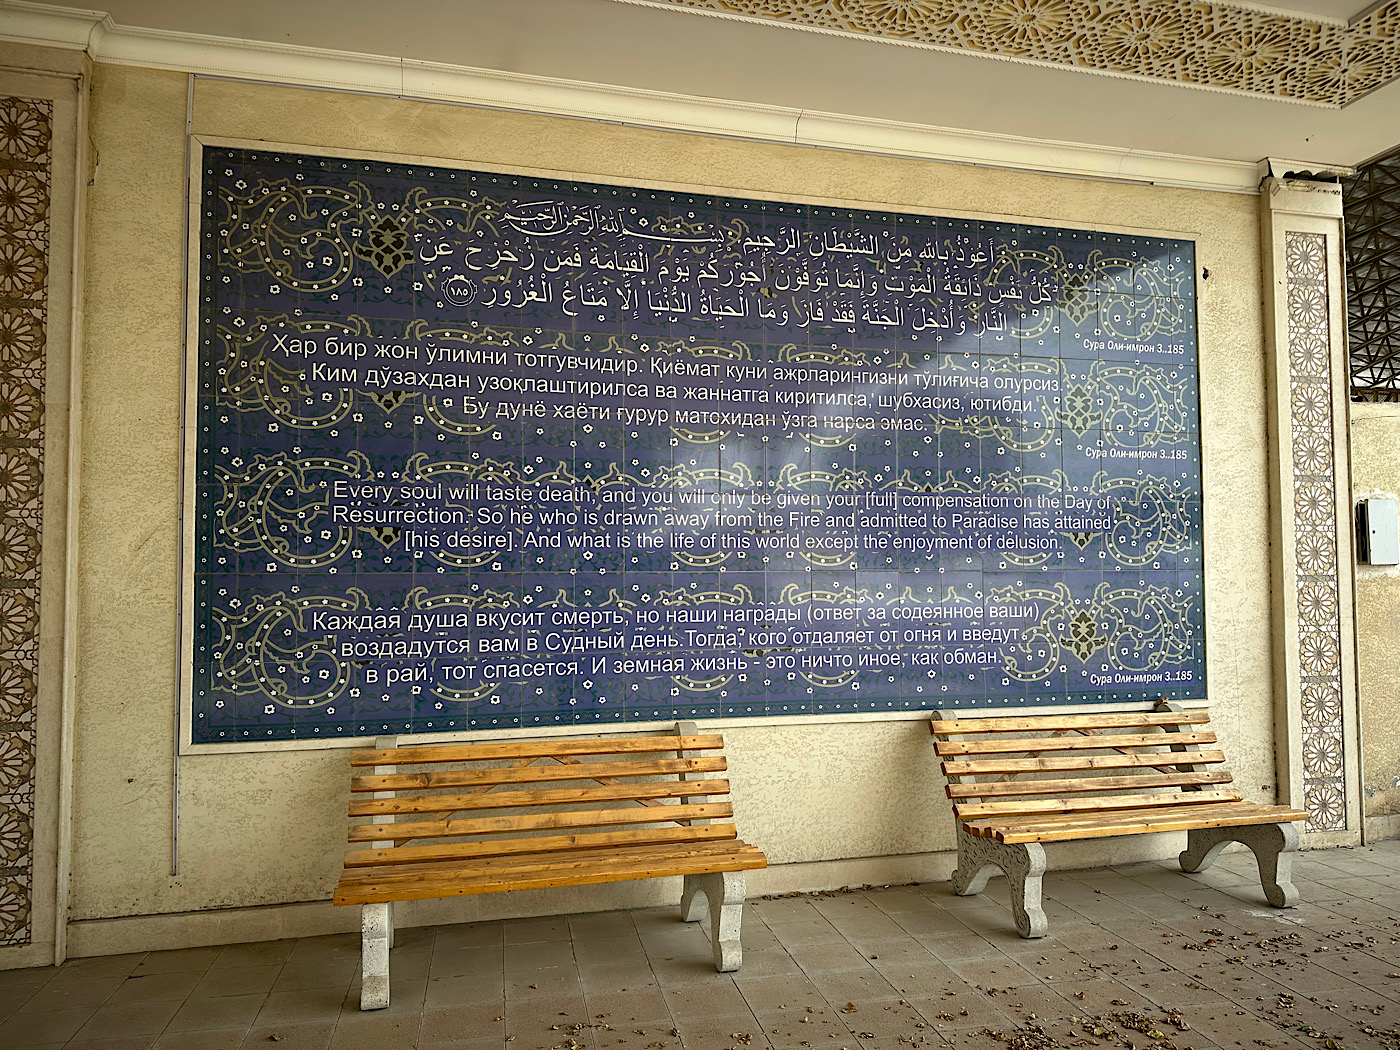 أَعُوْذُ بِاللهِ مِنَ الشَّيْطَانِ الرَّجِيمِ بِسْمِ اللهِ الرَّحْمٰنِ الرَّحِيْمِ
كُلُّ نَفْسٍ ذَائِقَةُ الْمَوْتِ وَإِنَّمَا تُوَفَّوْنَ أُجُوْرَكُمْ يَوْمَ الْقِيَامَةِ فَمَنْ زُحْزِحَ عَنِ
النَّارِ وَأُدْخِلَ الْجَنَّةَ فَقَدْ فَازَ وَمَا الْحَيَاةُ الدُّنْيَا إِلَّا مَتَاعُ الْغُرُوْرِ ١٨٥
Сура Оли-имрон 3..185
Ҳар бир жон ўлимни тотгувчидир. Қиёмат куни ажрларингизни тўлиғича олурсиз.
Ким дўзахдан узоқлаштирилса ва жаннатга киритилса, шубхасиз, ютибди.
Бу дунё хаёти ғурур матохидан ўзга нарса эмас.
Сура Оли-имрон 3..185
Every soul will taste death, and you will only be given your [full] compensation on the Day of
Resurrection. So he who is drawn away from the Fire and admitted to Paradise has attained
[his desire]. And what is the life of this world except the enjoyment of delusion.
Каждая душа вкусит смерть, но наши награды (ответ за содеянное ваши)
воздадутся вам в Судный день. Тогда, кого отдаляет от огня и введут
в рай, тот спасется. И земная жизнь - это ничто иное, как обман.
Сура Оли-имрон 3..185